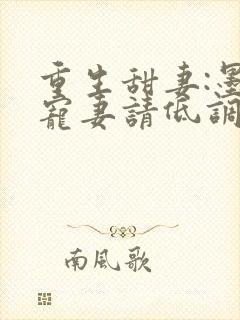 重生甜妻:墨
寵妻請低調
南風歌